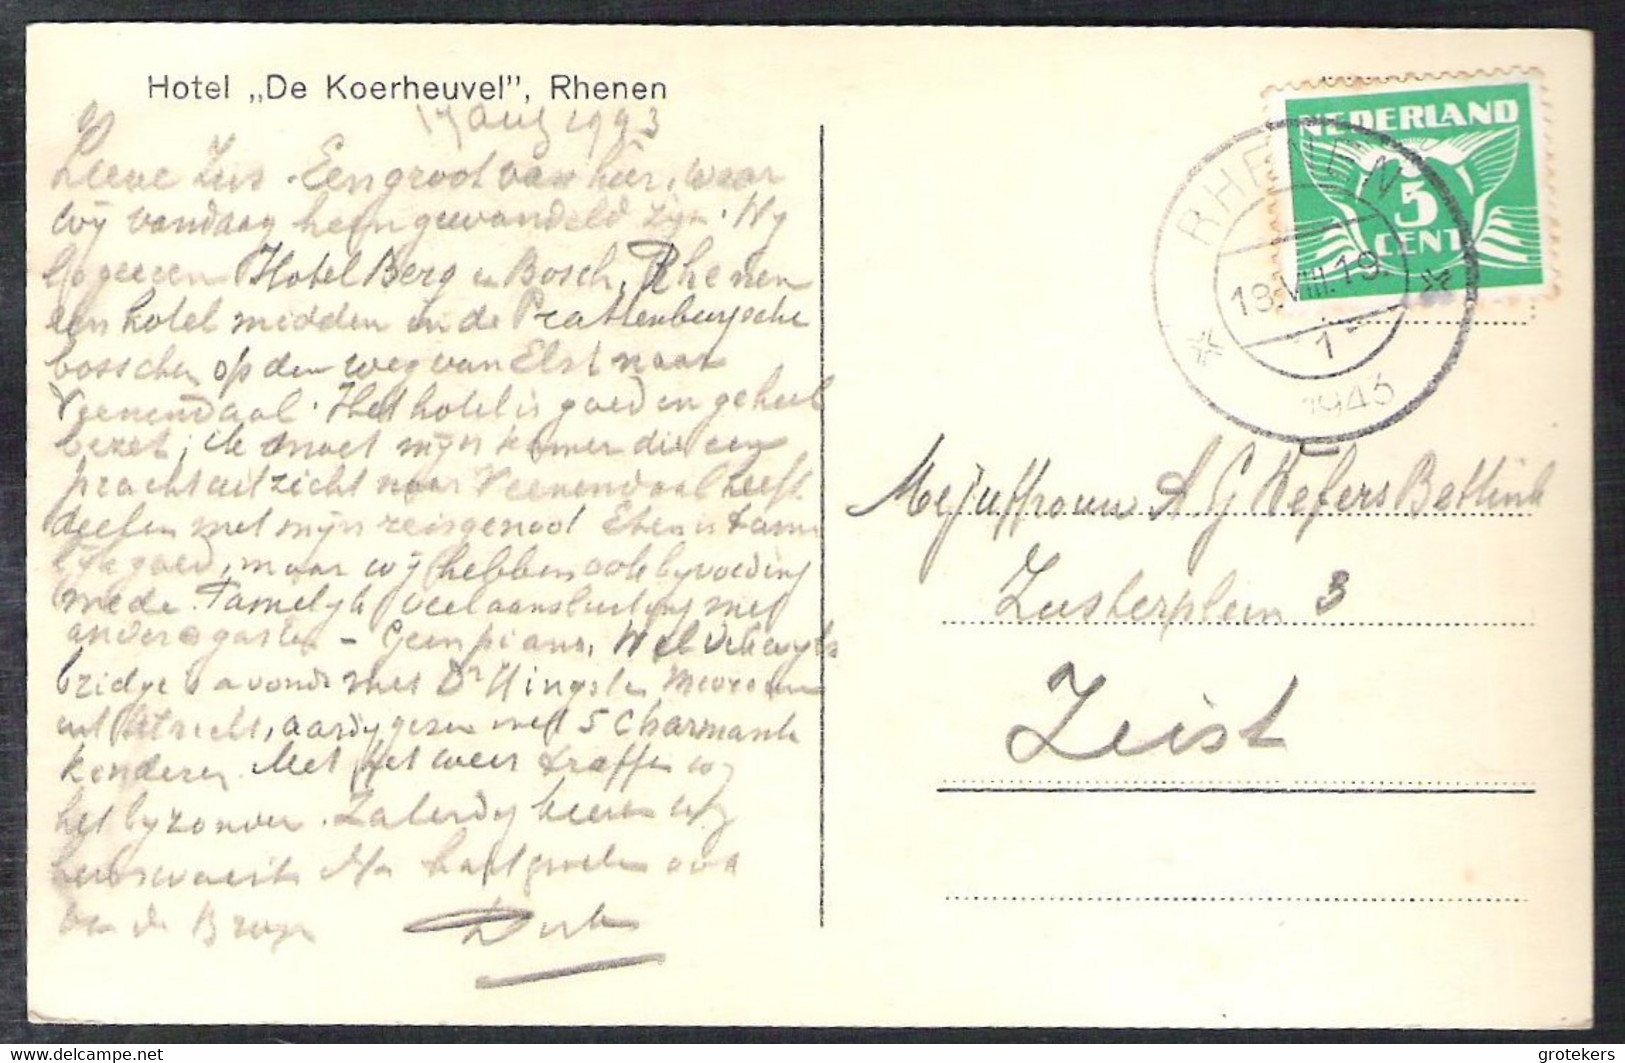 Hotel „De Koerheuvel", Rhenen
17 Aug 1943
Lieve Zus. Een groet van hier, waar
wij vandaag heen gewandeld zijn. Wij
logeeren Hotel Berg en Bosch, Rhenen
een hotel midden in de Prattenburgsche
bosschen op den weg van Elst naar
Veenendaal. Het hotel is goed en geheel
bezet; ik moet mijn kamer die een
prachtuitzicht naar Veenendaal heeft
deelen met mijn reisgenoot Eten is tame
lijk goed, maar wij hebben ook byvoeding
mede. Tamelijk veel aansluiting met
andere gasten - Geen piano, Wel
bridge 's avonds met Dr
uit Utrecht, aardig gezin met 5 charmante
kinderen. Met het weer treffen wij
het byzonder. Zaterdag keeren wij
huiswaarts hartgroeten ook
van de
Dirk
NEDERLAND
5
CENT
RHENEN
18.VIII.19.
1-
1943
Mejuffrouw A G Wefers Bettink
Lusterplein 3
Zeist
www.delcampe.net
grotekers